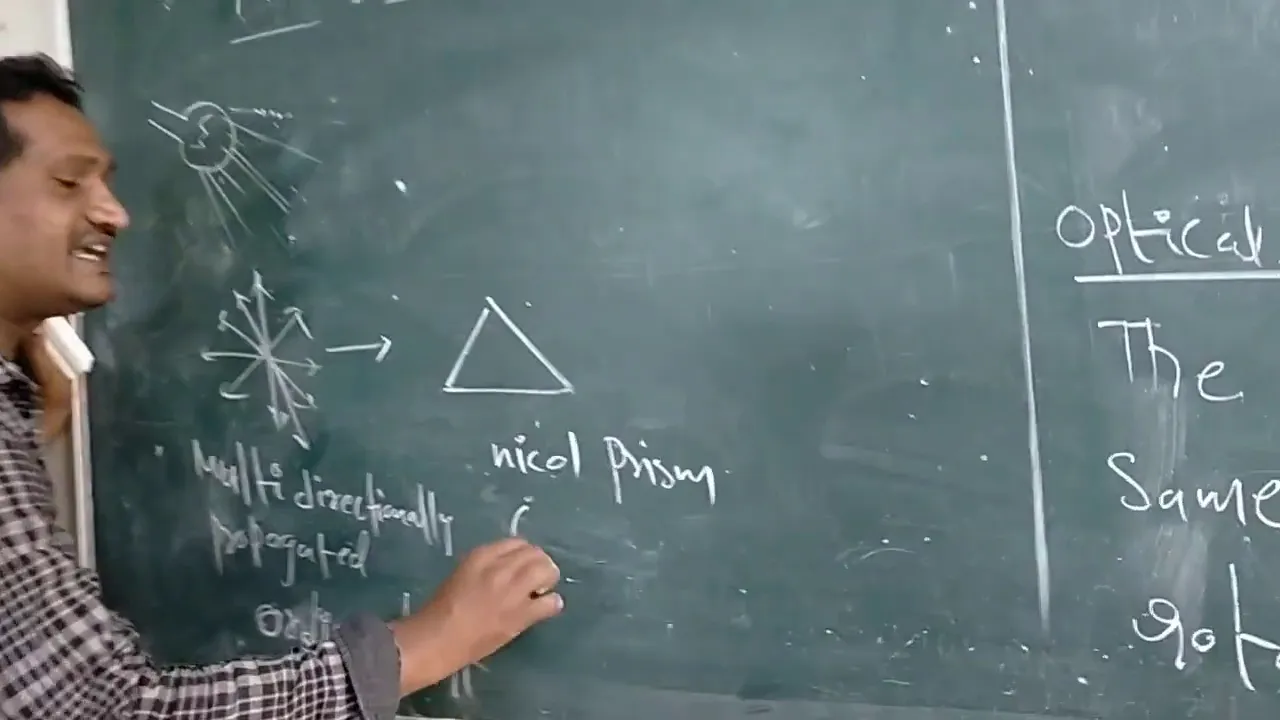 Multi directionally
propagated
nicol Prism
Optical
The
Same